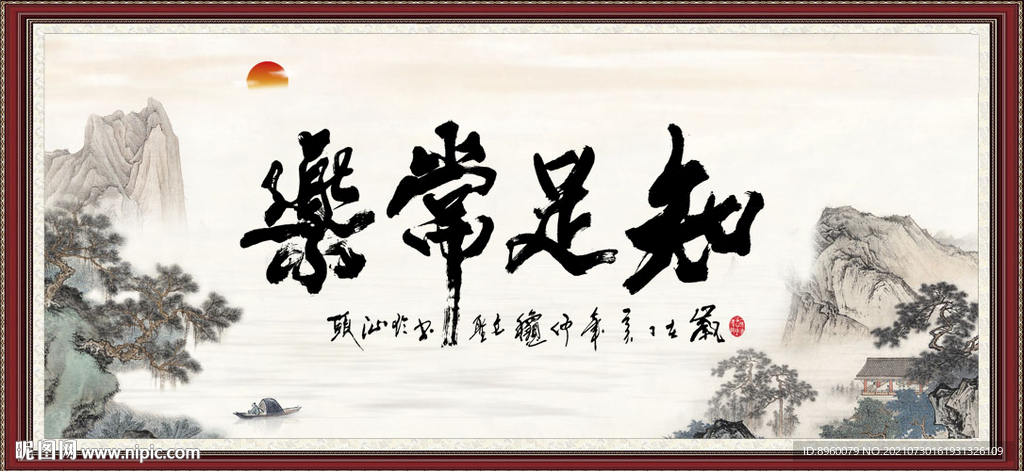 知足常樂
歲在丁亥年仲龝
書於汕頭
昵图网 www.nipic.com
ID:8960079 NO.20210730161931326109